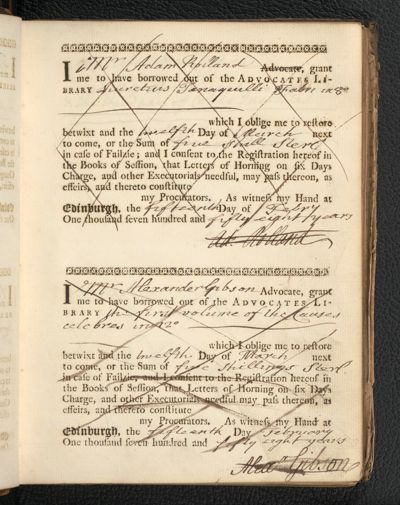 I Mr Adam Rolland Advocate, grant
me to have borrowed out of the ADVOCATES LI-
BRARY Lucretius Tanaquilli Fabri in 8o
which I oblige me to restore
betwixt and the twelfth Day of March next
to come, or the Sum of five Shill Sterl
in case of Failzie; and I consent to the Registration hereof in
the Books of Session, that Letters of Horning on six Days
Charge, and other Executorials needful, may pass thereon, as
effeirs, and thereto constitute
my Procurators. As witness my Hand at
Edinburgh, the fifteenth Day of Febry
One thousand seven hundred and fifty eight years
Ad. Rolland
I Mr Alexander Gibson Advocate, grant
me to have borrowed out of the ADVOCATES LI-
BRARY the first volume of the Causes
celebres in 12o
which I oblige me to restore
betwixt and the twelfth Day of March next
to come, or the Sum of five Shillings Sterl
in case of Failzie; and I consent to the Registration hereof in
the Books of Session, that Letters of Horning on six Days
Charge, and other Executorials needful may pass thereon, as
effeirs, and thereto constitute
my Procurators. As witness my Hand at
Edinburgh, the fifteenth Day February
One thousand seven hundred and fifty eight years
Alexr Gibson